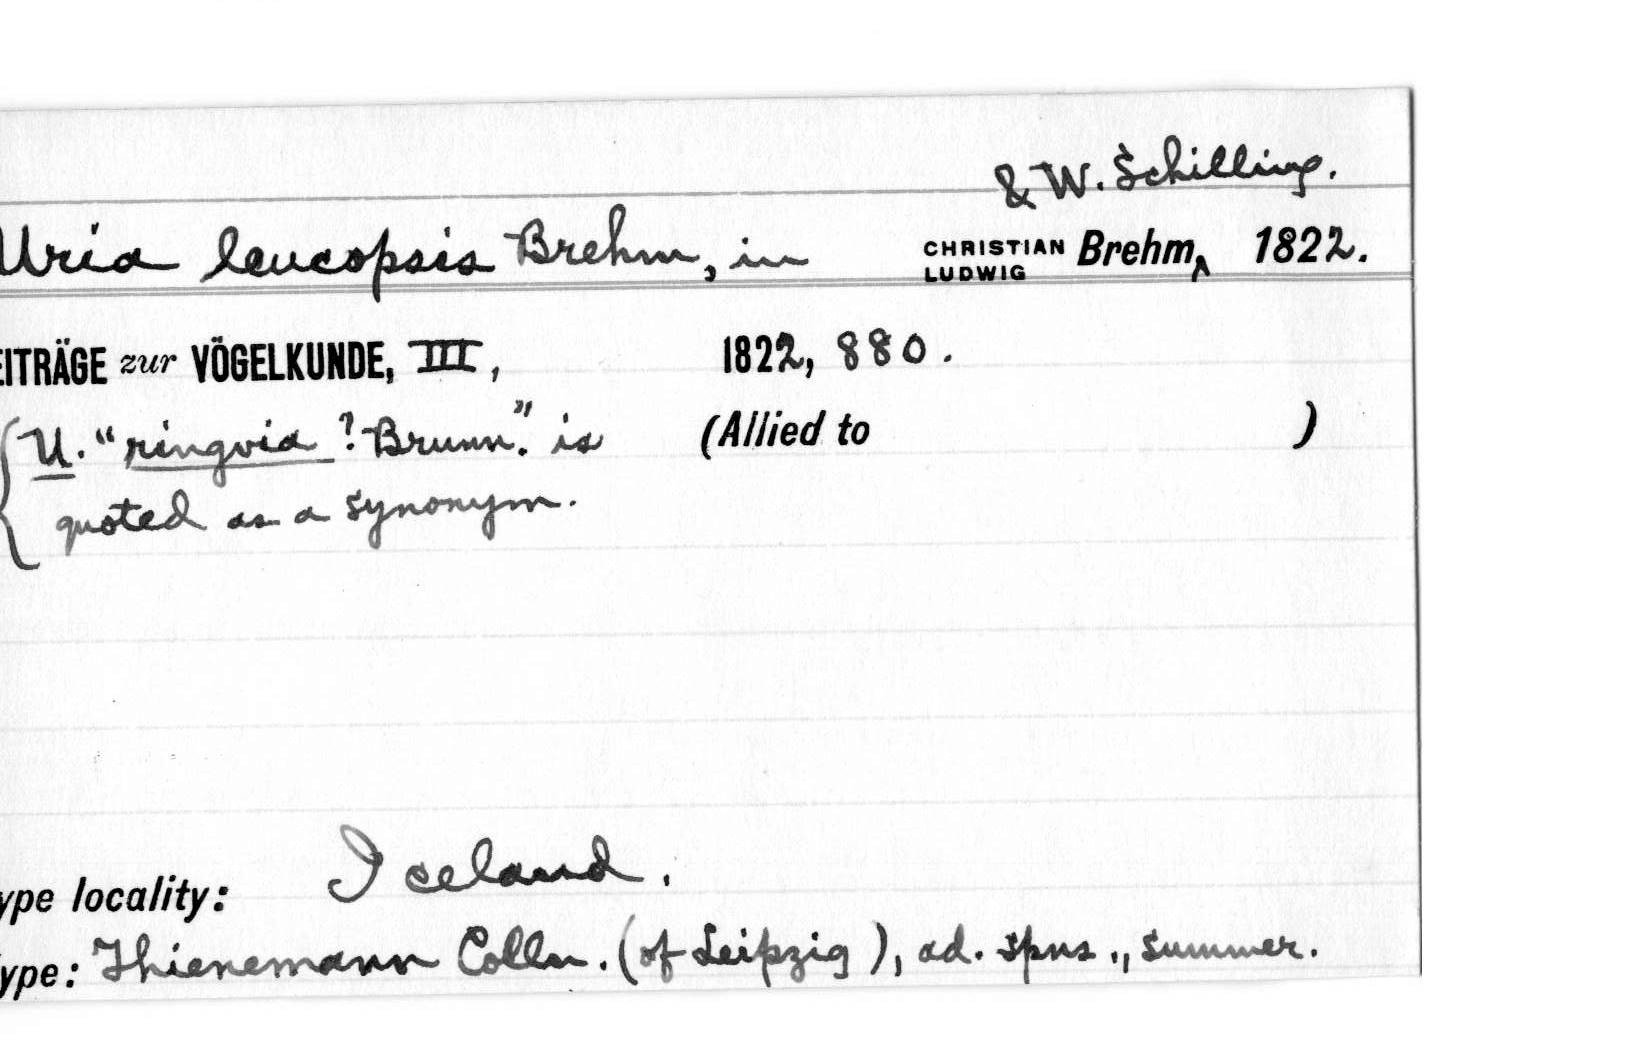 & W. Schilling.
Uria leucopsis Brehm, in CHRISTIAN LUDWIG Brehm‸ 1822.
EITRÄGE zur VÖGELKUNDE, III, 1822, 880.
U. "ringvia ? Brunn." is (Allied to )
quoted as a synonym.
ype locality: Iceland.
ype: Thienemann Colln. (of Leipzig), ad. spns., summer.